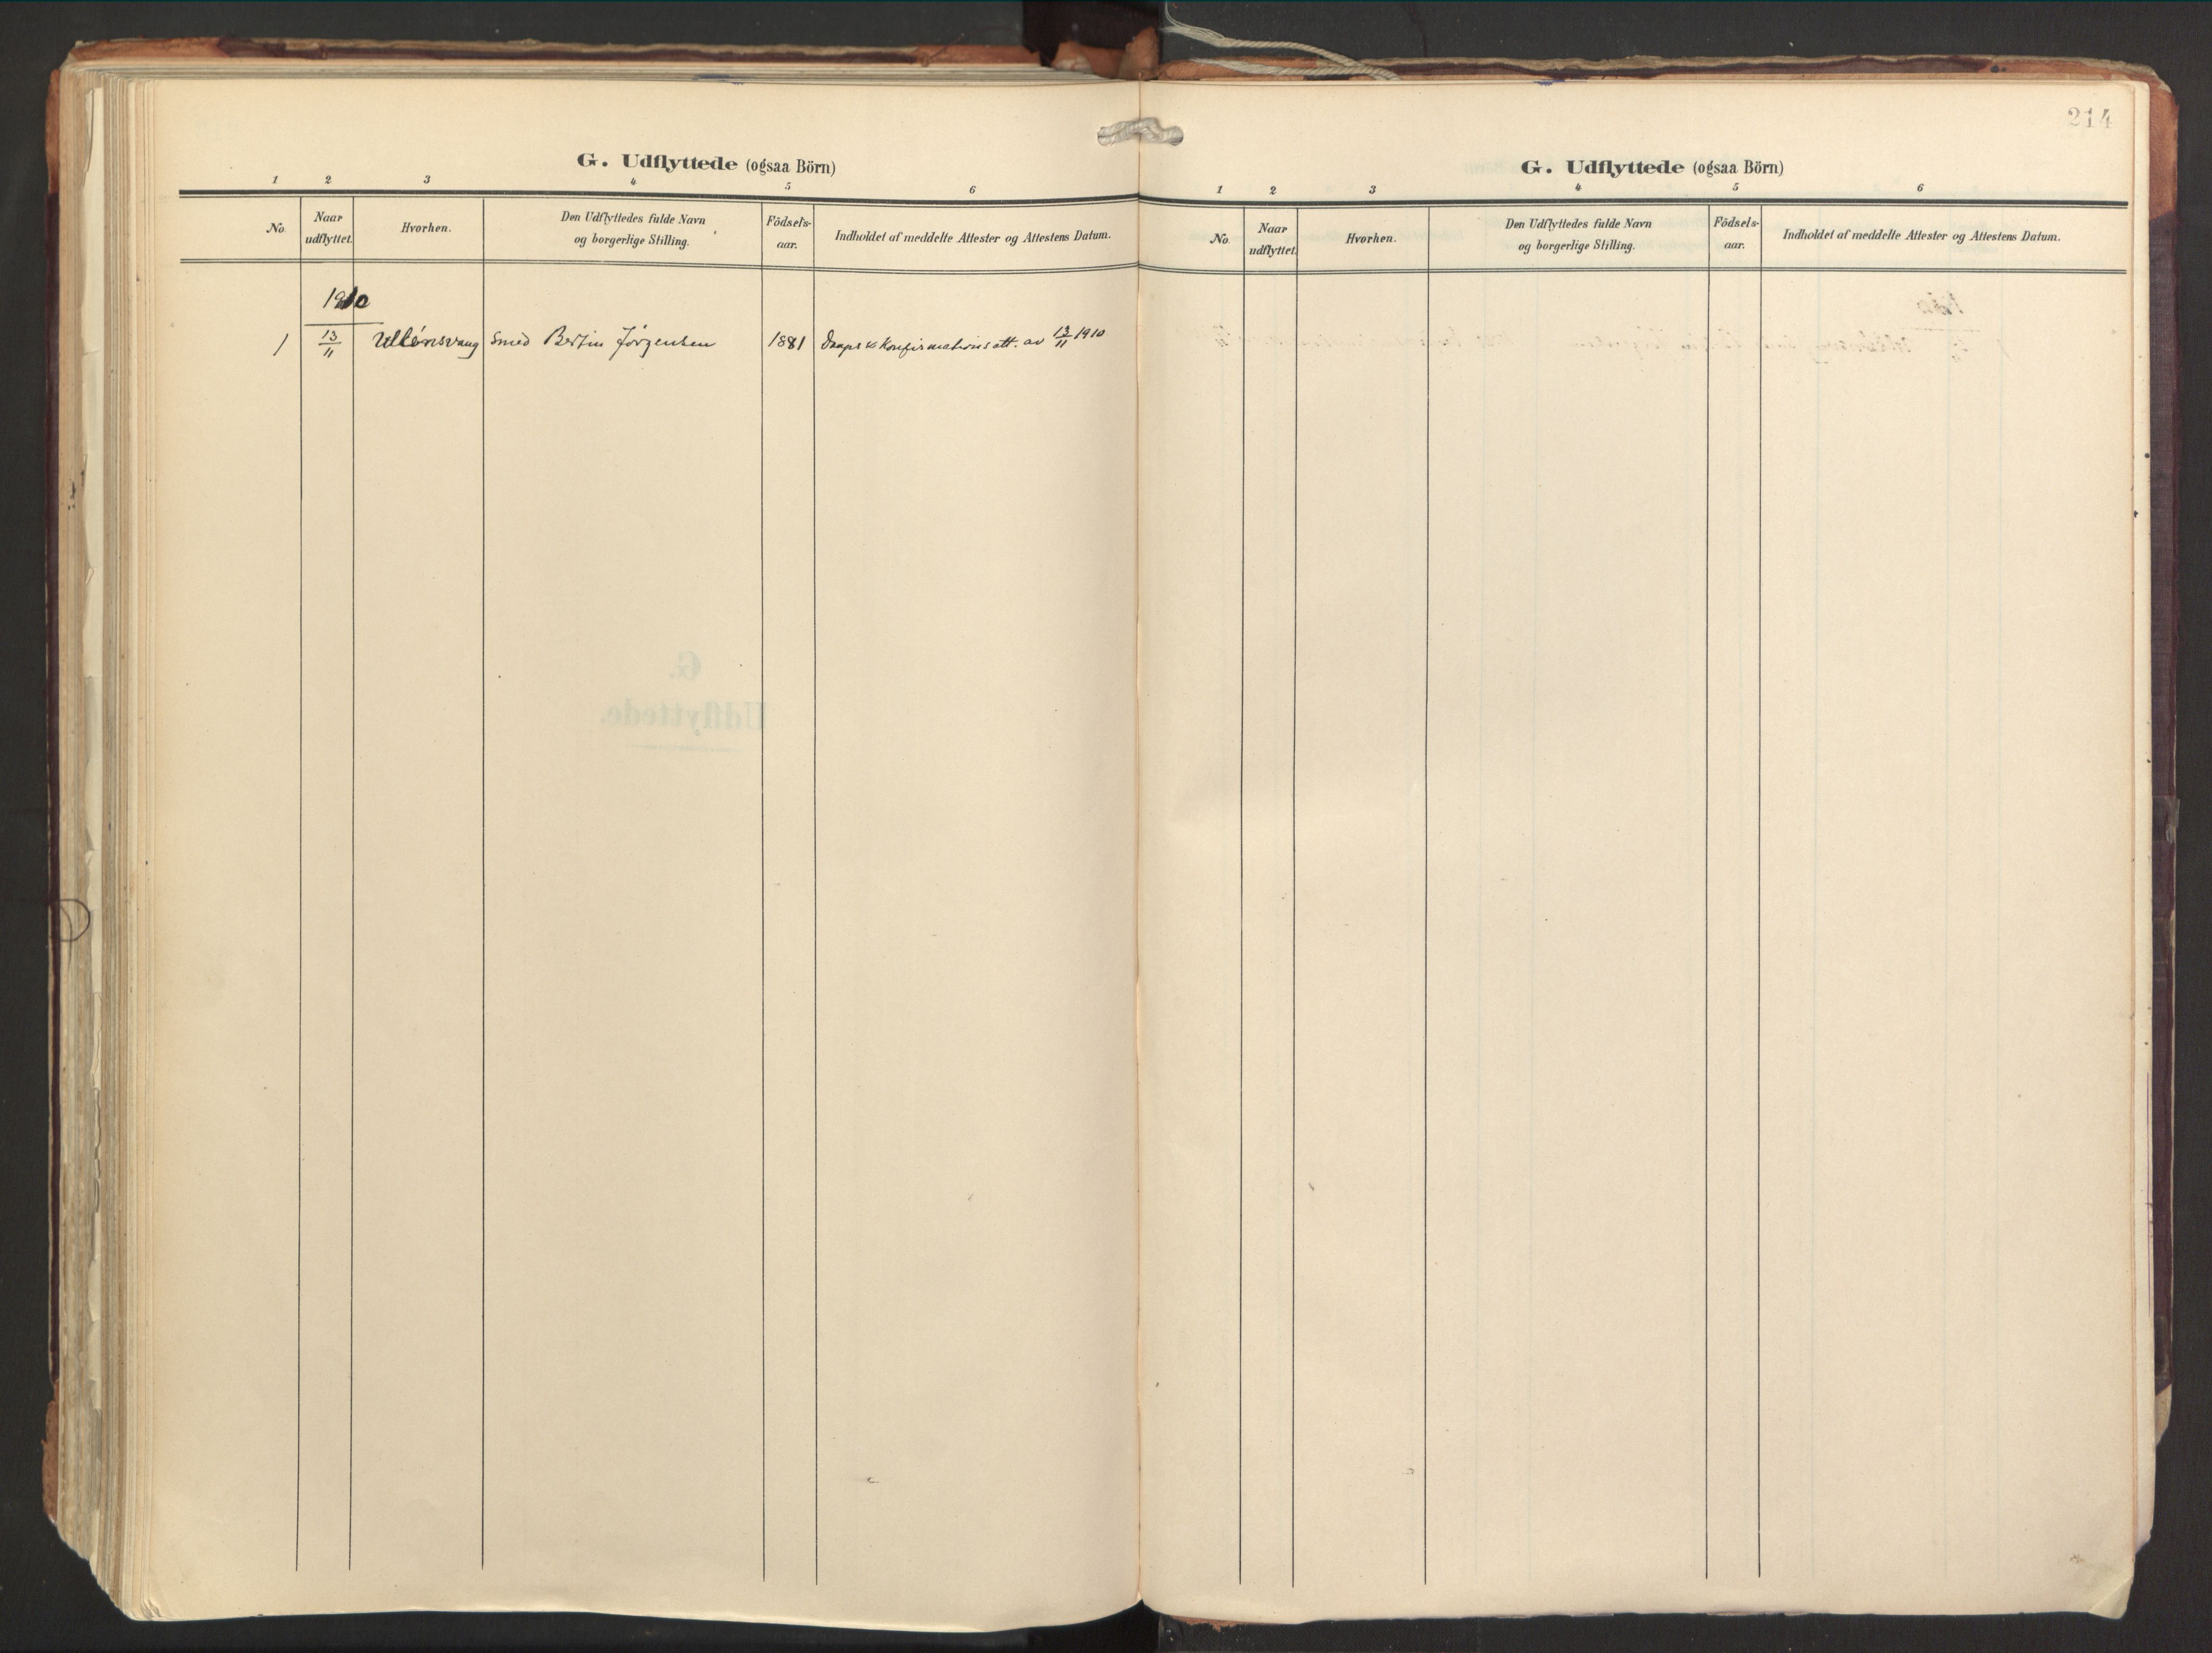 G. Udflyttede (ogsaa Börn)
1 2 3 4 5 6
No. Naar udflyttet. Hvorhen. Den Udflyttedes fulde Navn og borgerlige Stilling. Födsels-aar. Indholdet af meddelte Attester og Attestens Datum.
1910
1 13/11 Ullensvang Smed Bertin Jørgensen 1881 Daaps & Konfirmationsatt. av 13/11 1910
G.
Udflyttede.
214
G. Udflyttede (ogsaa Börn)
1 2 3 4 5 6
No. Naar udflyttet. Hvorhen. Den Udflyttedes fulde Navn og borgerlige Stilling. Födsels-aar. Indholdet af meddelte Attester og Attestens Datum.